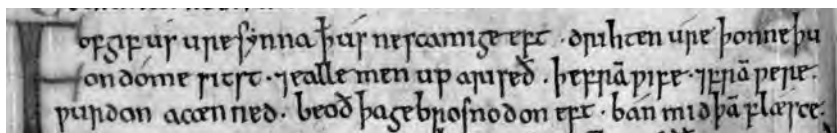 Forgif us ure sẏnna ꝥ us ne scamige eft · drihten ure þonne þu
on dóme sitst · ⁊ ealle men up ariseð · þe frā ƿife · ⁊ frā ƿere ·
ƿurdon acænned · beoð þa gebrosnodon eft · bán mid þā flæsce ·